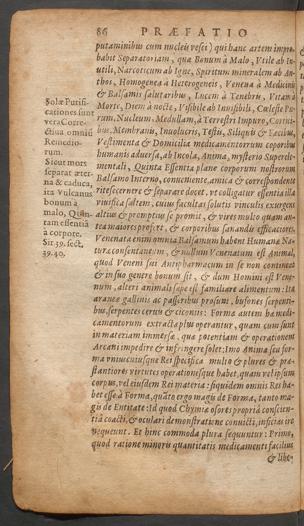 86 PRÆFATIO
putaminibus cum nucleis vesci) qui hanc artem impro-
babit Separatoriam, qua Bonum à Malo, Vtile ab In-
utili, Narcoticum ab Igne, Spiritum mineralem ab An-
thos, Homogenea à Heterogeneis, Venena à Medicinis
& Balsamis salutaribus, Lucem à Tenebris, Vitam à
Morte, Diem à nocte, Visibile ab Invisibili, Cæleste Pu-
rum, Nucleum, Medullam, à Terrestri Impuro, Corti-
bus, Membranis, Involucris, Testis, Siliquis & Fæcibus,
Vestimenta & Domicilia medicamentorum corporibus
humanis adversa, ab Incola, Anima, mysterio Superele-
mentali, Quinta Essentia plane corporum nostrorum
Balsamo Interno, conveniente, amica & correspondente
rite secernere & separare docet, vt colligatur essentia illa
vivifica saltem, cuius facultas solutis vinculis exurgens
altius & promptius se promit, & vires multo quam an-
tea maiores profert, & corporibus sanandis efficatiores.
Venenata enim omnia Balsamum habent Humanæ Na-
turæ consentaneum, & nullum Venenatum est Animal,
quod Veneni sui Antipharmacum in se non contineat
& in suo genere bonum sit, & dum Homini est Vene-
num, alteri animali sæpe est familiare alimentum: Ita
araneæ gallinis ac passeribus prosunt, bufones serpenti-
bus, serpentes cervis & ciconiis: Forma autem hæ medi-
camentorum extracta plus operantur, quam cum sunt
in materiam immersæ, qua potentiam & operationem
Arcani impedire & infringere solet: Imo Anima seu for-
ma vniuscuiusque Rei specifica multo & plures & præ-
stantiores virtutes operationesque habet, quam vel ipsum
corpus, vel eiusdem Rei materia: siquidem omnis Res ha-
bet esse à Forma, quâto ergo magis de Forma, tanto ma-
gis de Entitate: Id quod Chymiæ osores propria conscien-
tiâ coacti, & oculari demonstratione convicti, inficias ire
nequeunt. Et hinc commoda plura sequuntur: Primo,
quod ratione minoris quantitatis medicamenti facilius
& libe-
Solæ Purifi-
cationes sunt
vera Corre-
ctiua omniũ
Remedio-
rum.
Sicut mors
separat æter-
na & caduca,
ita Vulcanus
bonum à
malo, Quin-
tam essentiã
à corpore.
Sir. 39. sect.
39. 40.